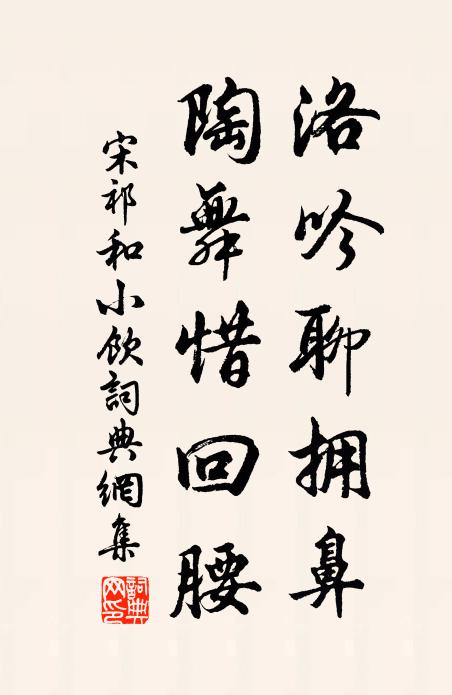 洛吟聊拥鼻
陶舞惜回腰
宋祁和小飲詞典網集
詞典網印